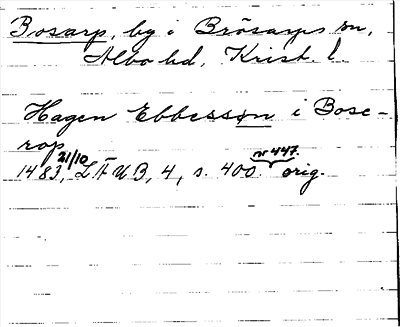 Bosarp, by i Brösarps sn,
Albo hd, Krist. l.
Hagen Ebbesson i Bose-
rop
1483 21/10, LÄUB, 4, s. 400 nr 447. orig.